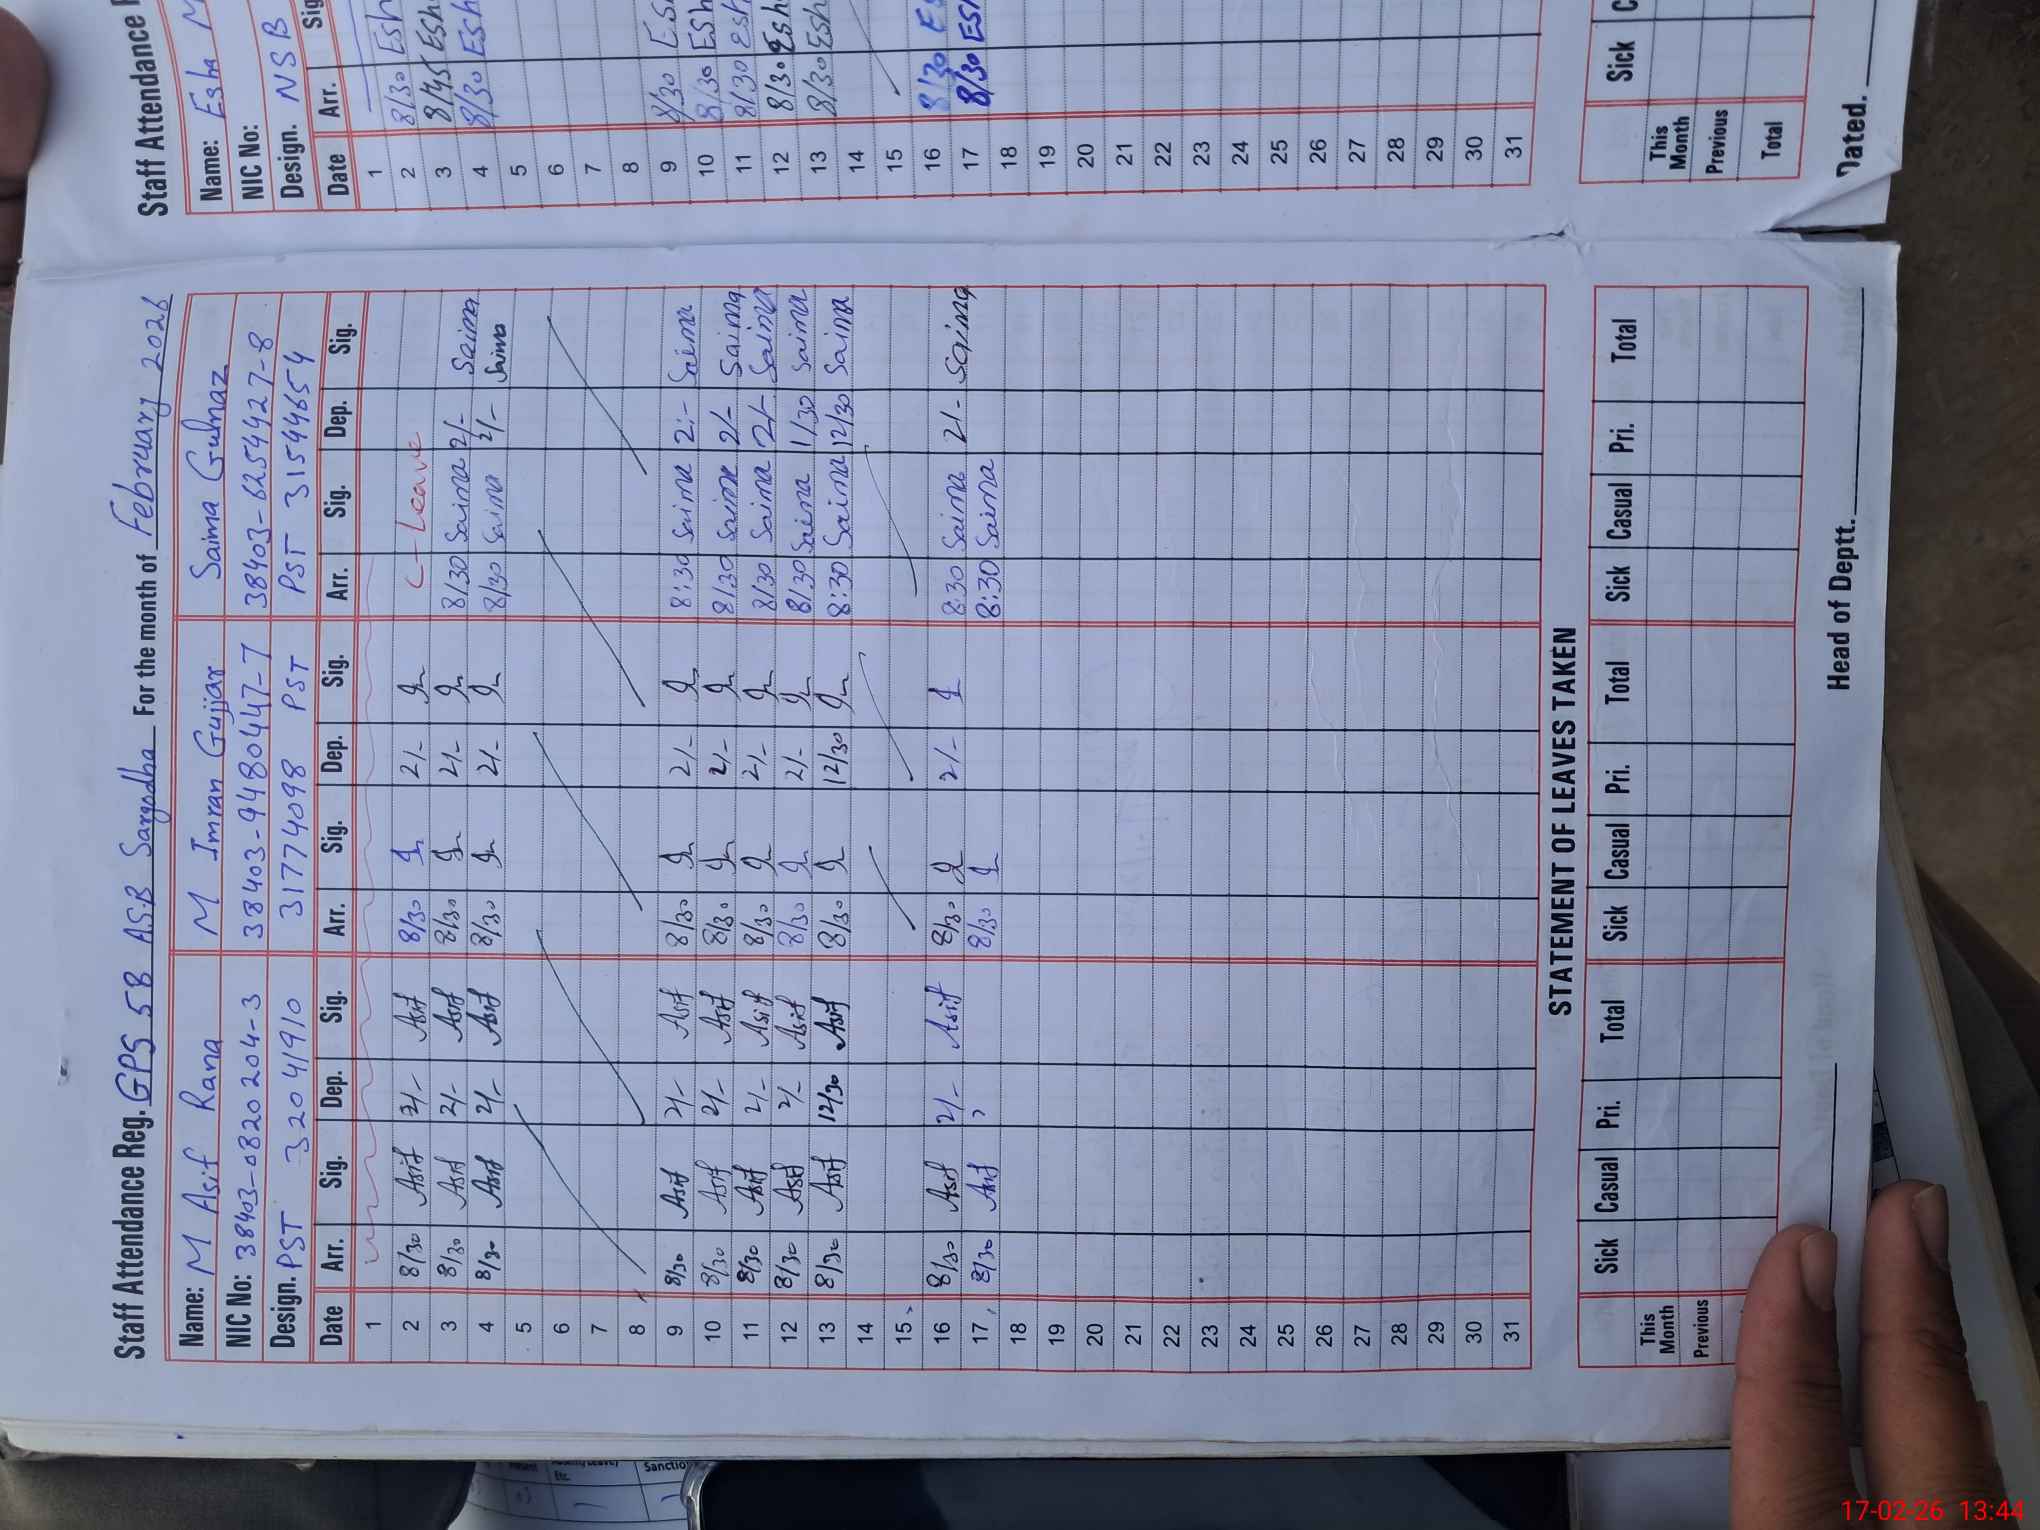 Staff Attendance Reg. GPS 58 A.S.B Sargodha For the month of February 2026
Name: M Asif Rana M Imran Gujjar Saima Gulnaz
NIC No: 38403-0820204-3 38403-9480447-7 38403-6254427-8
Design. PST 32041910 31774098 PST PST 31544654
Date Arr. Sig. Dep. Sig. Arr. Sig. Dep. Sig. Arr. Sig. Dep. Sig.
1
2 8/30 Asif 2/- Asif 8/30 2/- C-Leave
3 8/30 Asif 2/- Asif 8/30 2/- 8/30 Saima 2/- Saima
4 8/30 Asif 2/- Asif 8/30 2/- 8/30 Saima 2/- Saima
5
6
7
8
9 8/30 Asif 2/- Asif 8/30 2/- 8:30 Saima 2:- Saima
10 8/30 Asif 2/- Asif 8/30 2/- 8/30 Saima 2/- Saima
11 8/30 Asif 2/- Asif 8/30 2/- 8/30 Saima 2/- Saima
12 8/30 Asif 2/- Asif 8/30 2/- 8/30 Saima 1/30 Saima
13 8/30 Asif 12/30 Asif 8/30 12/30 8:30 Saima 12/30 Saima
14
15
16 8/30 Asif 2/- Asif 8/30 2/- 8:30 Saima 2/- Saima
17 8/30 Asif 8/30 8:30 Saima
18
19
20
21
22
23
24
25
26
27
28
29
30
31
STATEMENT OF LEAVES TAKEN
Sick Casual Pri. Total Sick Casual Pri. Total Sick Casual Pri. Total
This Month
Previous
Head of Deptt.
Staff Attendance
Name: Esha
NIC No:
Design. NSB
Date Arr.
1
2 8/30 Esh
3 8/45 Esh
4 8/30 Esh
5
6
7
8
9 8/30
10 8/30 Esh
11 8/30 Esh
12 8/30 Esh
13 8/30 Esh
14
15
16 8/30
17 8/30 Esh
18
19
20
21
22
23
24
25
26
27
28
29
30
31
Sick
This Month
Previous
Total
Dated.
Etc.
17-02-26 13:44